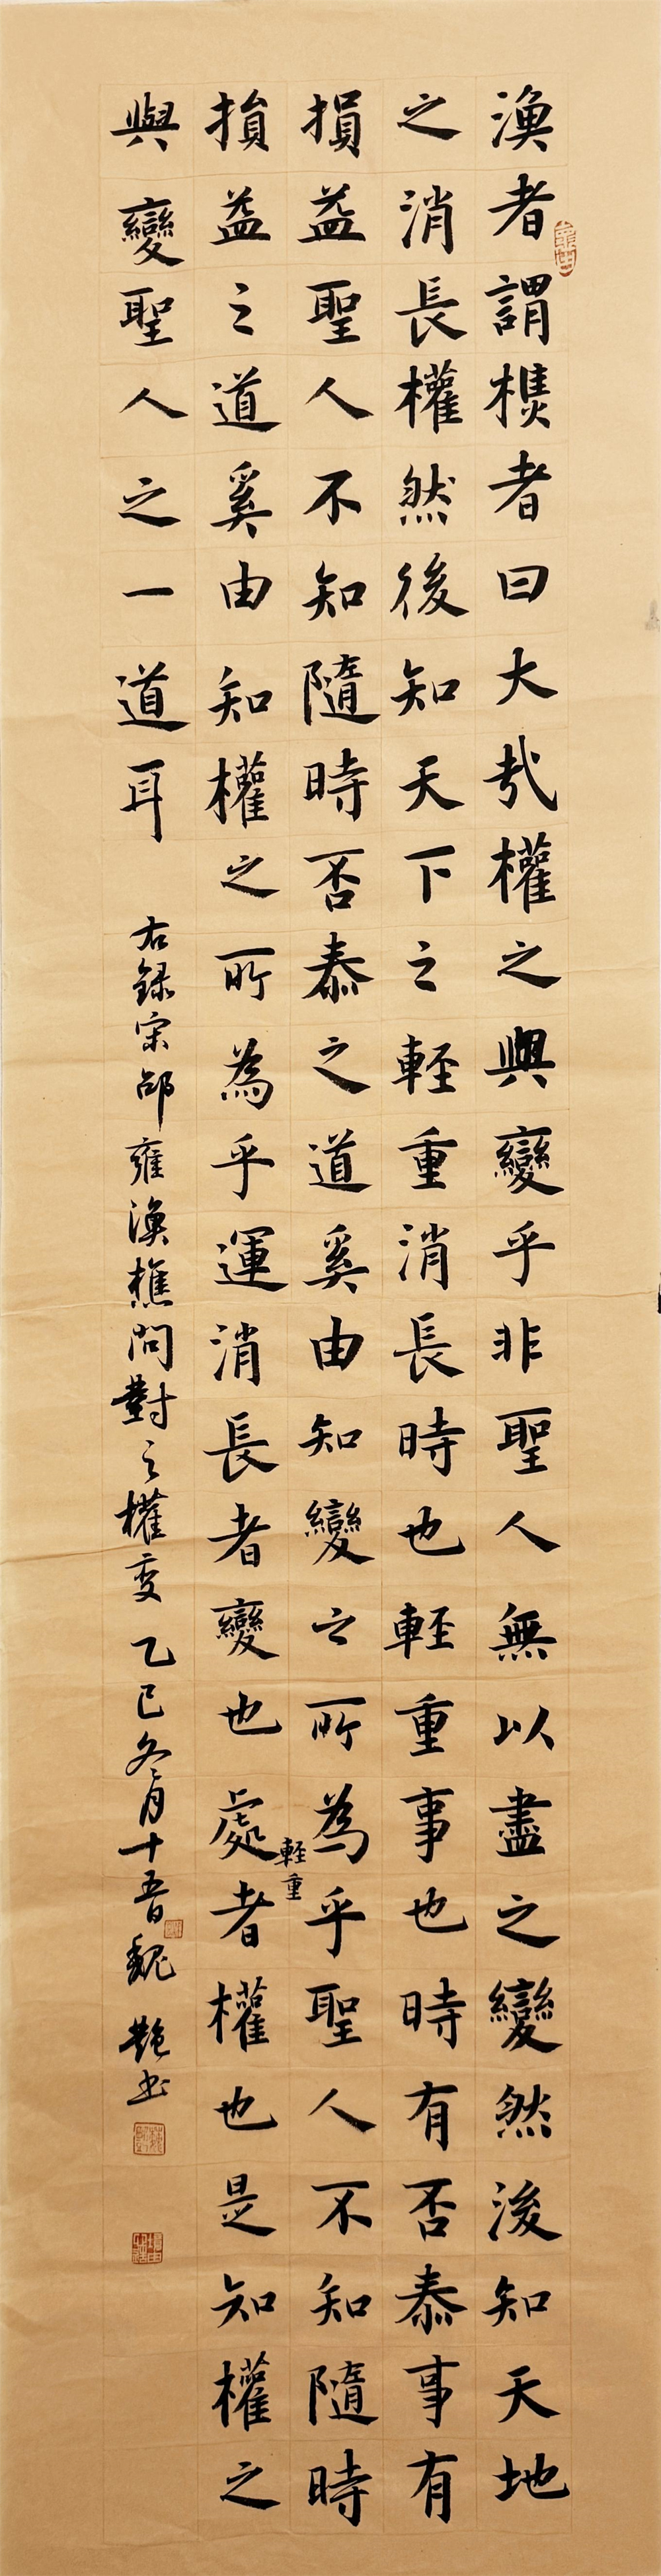 渔者謂樵者曰大哉權之與變乎非聖人無以盡之變然後知天地
之消長權然後知天下之輕重消長時也輕重事也時有否泰事有
損益聖人不知隨時否泰之道奚由知變之所為乎聖人不知隨時
損益之道奚由知權之所為乎運消長者變也處者權也是知權之
輕重
與變聖人之一道耳
右録宋邵雍漁樵問對之權变 乙巳冬月十五日 魏艷书